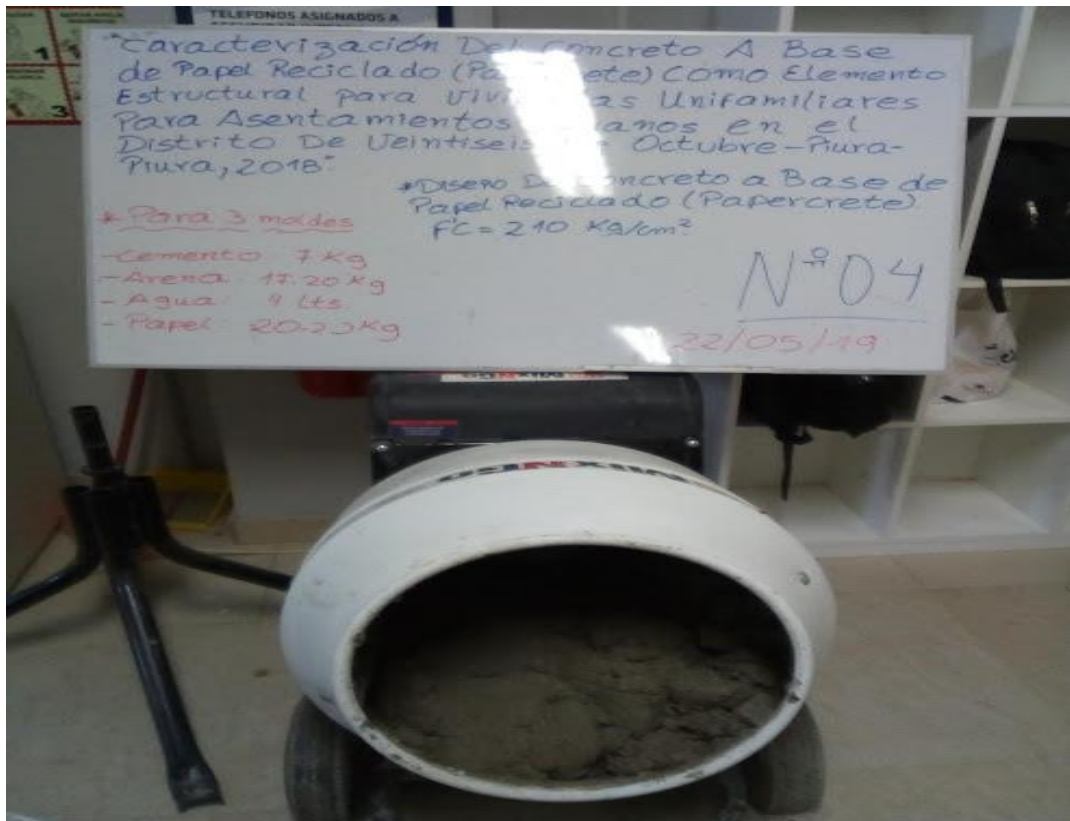 TELEFONOS ASIGNADOS A
1
3
"Caracterización Del Concreto A Base
de Papel Reciclado (Papercrete) Como Elemento
Estructural para Viviendas Unifamiliares
Para Asentamientos Humanos en el
Distrito De Veintiseis De Octubre-Piura-
Piura, 2018"
*Diseño De Concreto a Base de
Papel Reciclado (Papercrete)
F'C = 210 Kg/cm²
* Para 3 moldes
-Cemento 7 Kg
-Arena 17.20 Kg
-Agua 9 Lts
-Papel Kg
N° 04
22/05/19